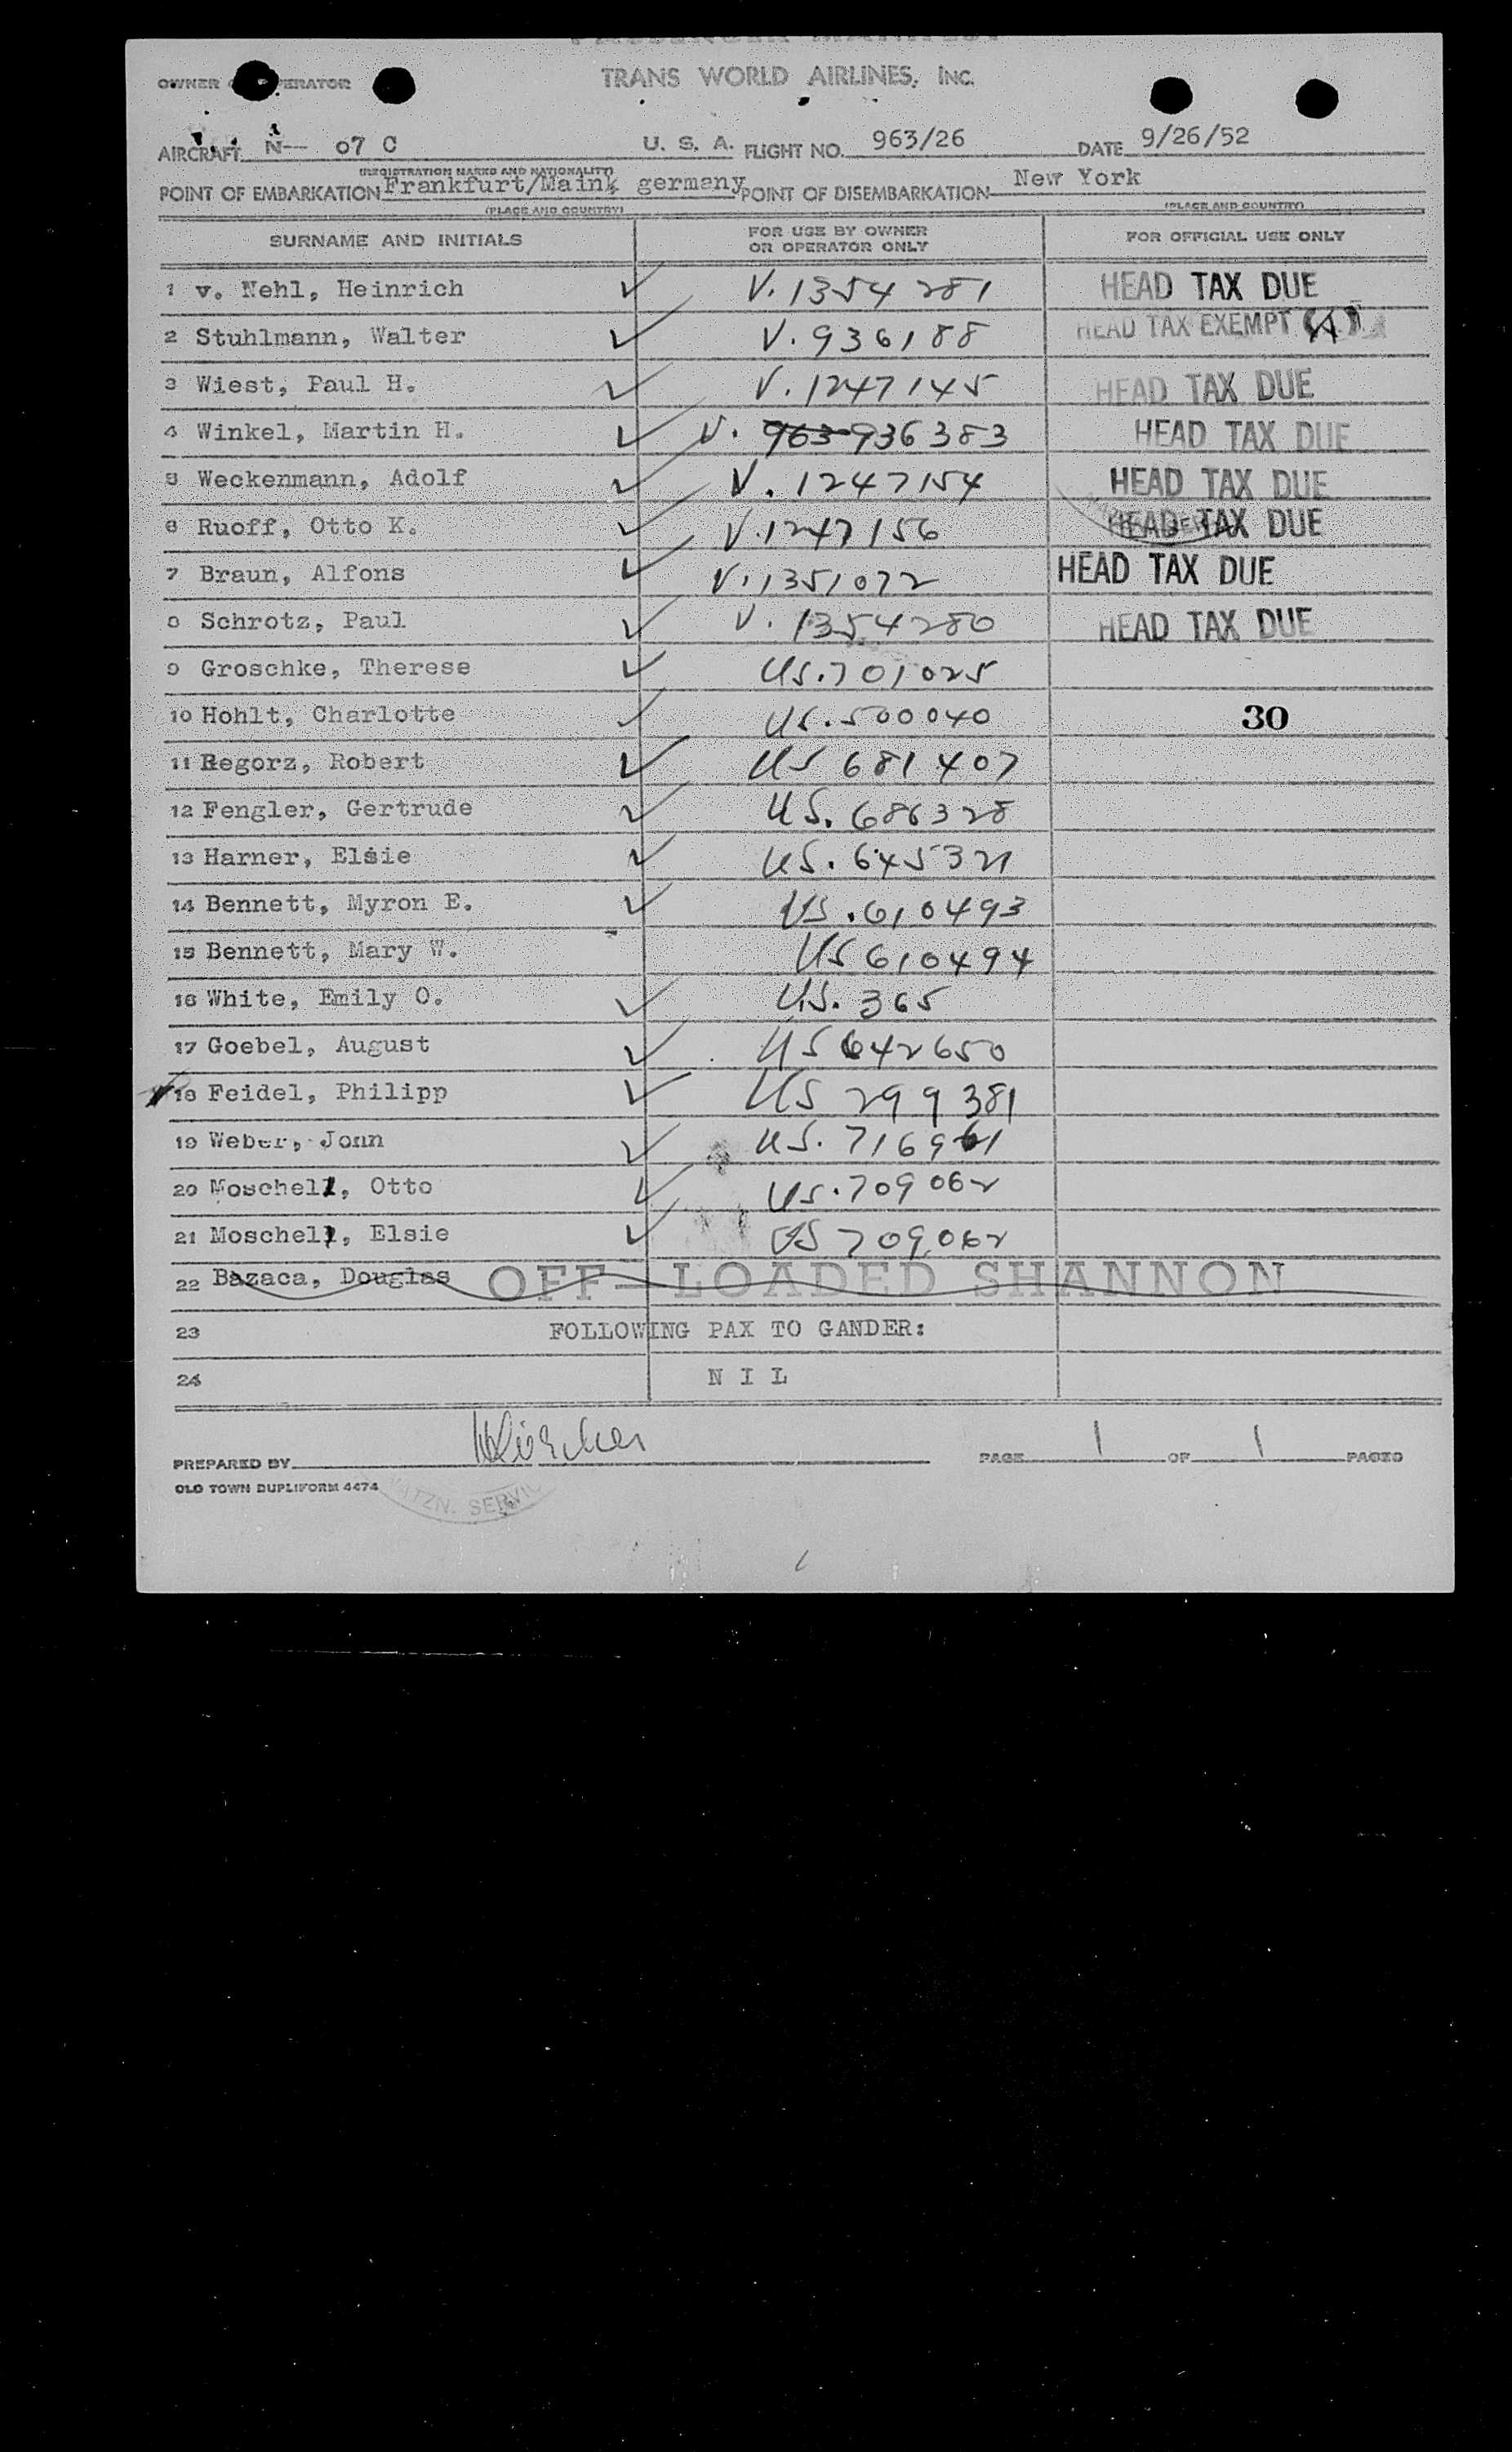 PASSENGER MANIFEST
OWNER OPERATOR TRANS WORLD AIRLINES, INC.
AIRCRAFT N-- 07 C U. S. A. FLIGHT NO. 963/26 DATE 9/26/52
(REGISTRATION MARKS AND NATIONALITY)
POINT OF EMBARKATION Frankfurt/Main, germany POINT OF DISEMBARKATION New York
(PLACE AND COUNTRY) (PLACE AND COUNTRY)
SURNAME AND INITIALS FOR USE BY OWNER OR OPERATOR ONLY FOR OFFICIAL USE ONLY
1 v. Nehl, Heinrich ✓ V. 1354281 HEAD TAX DUE
2 Stuhlmann, Walter ✓ V. 936188 HEAD TAX EXEMPT
3 Wiest, Paul H. ✓ V. 1247145 HEAD TAX DUE
4 Winkel, Martin H. ✓ V. 963 936383 HEAD TAX DUE
5 Weckenmann, Adolf ✓ V. 1247154 HEAD TAX DUE
6 Ruoff, Otto K. ✓ V. 1247156 HEAD TAX DUE
7 Braun, Alfons ✓ V. 1351072 HEAD TAX DUE
8 Schrotz, Paul ✓ V. 1354280 HEAD TAX DUE
9 Groschke, Therese ✓ US. 701025
10 Hohlt, Charlotte ✓ US. 500040 30
11 Regorz, Robert ✓ US 681407
12 Fengler, Gertrude ✓ US. 686328
13 Harner, Elsie ✓ US. 645321
14 Bennett, Myron E. ✓ US. 610493
15 Bennett, Mary W. US 610494
16 White, Emily O. ✓ US. 365
17 Goebel, August ✓ US 642650
18 Feidel, Philipp ✓ US 299381
19 Weber, John ✓ US. 716961
20 Moschell, Otto ✓ US. 709062
21 Moschell, Elsie ✓ US 709062
22 Bazaca, Douglas OFF-LOADED SHANNON
23 FOLLOWING PAX TO GANDER:
24 N I L
PREPARED BY PAGE 1 OF 1 PAGES
OLD TOWN DUPLIFORM 4474